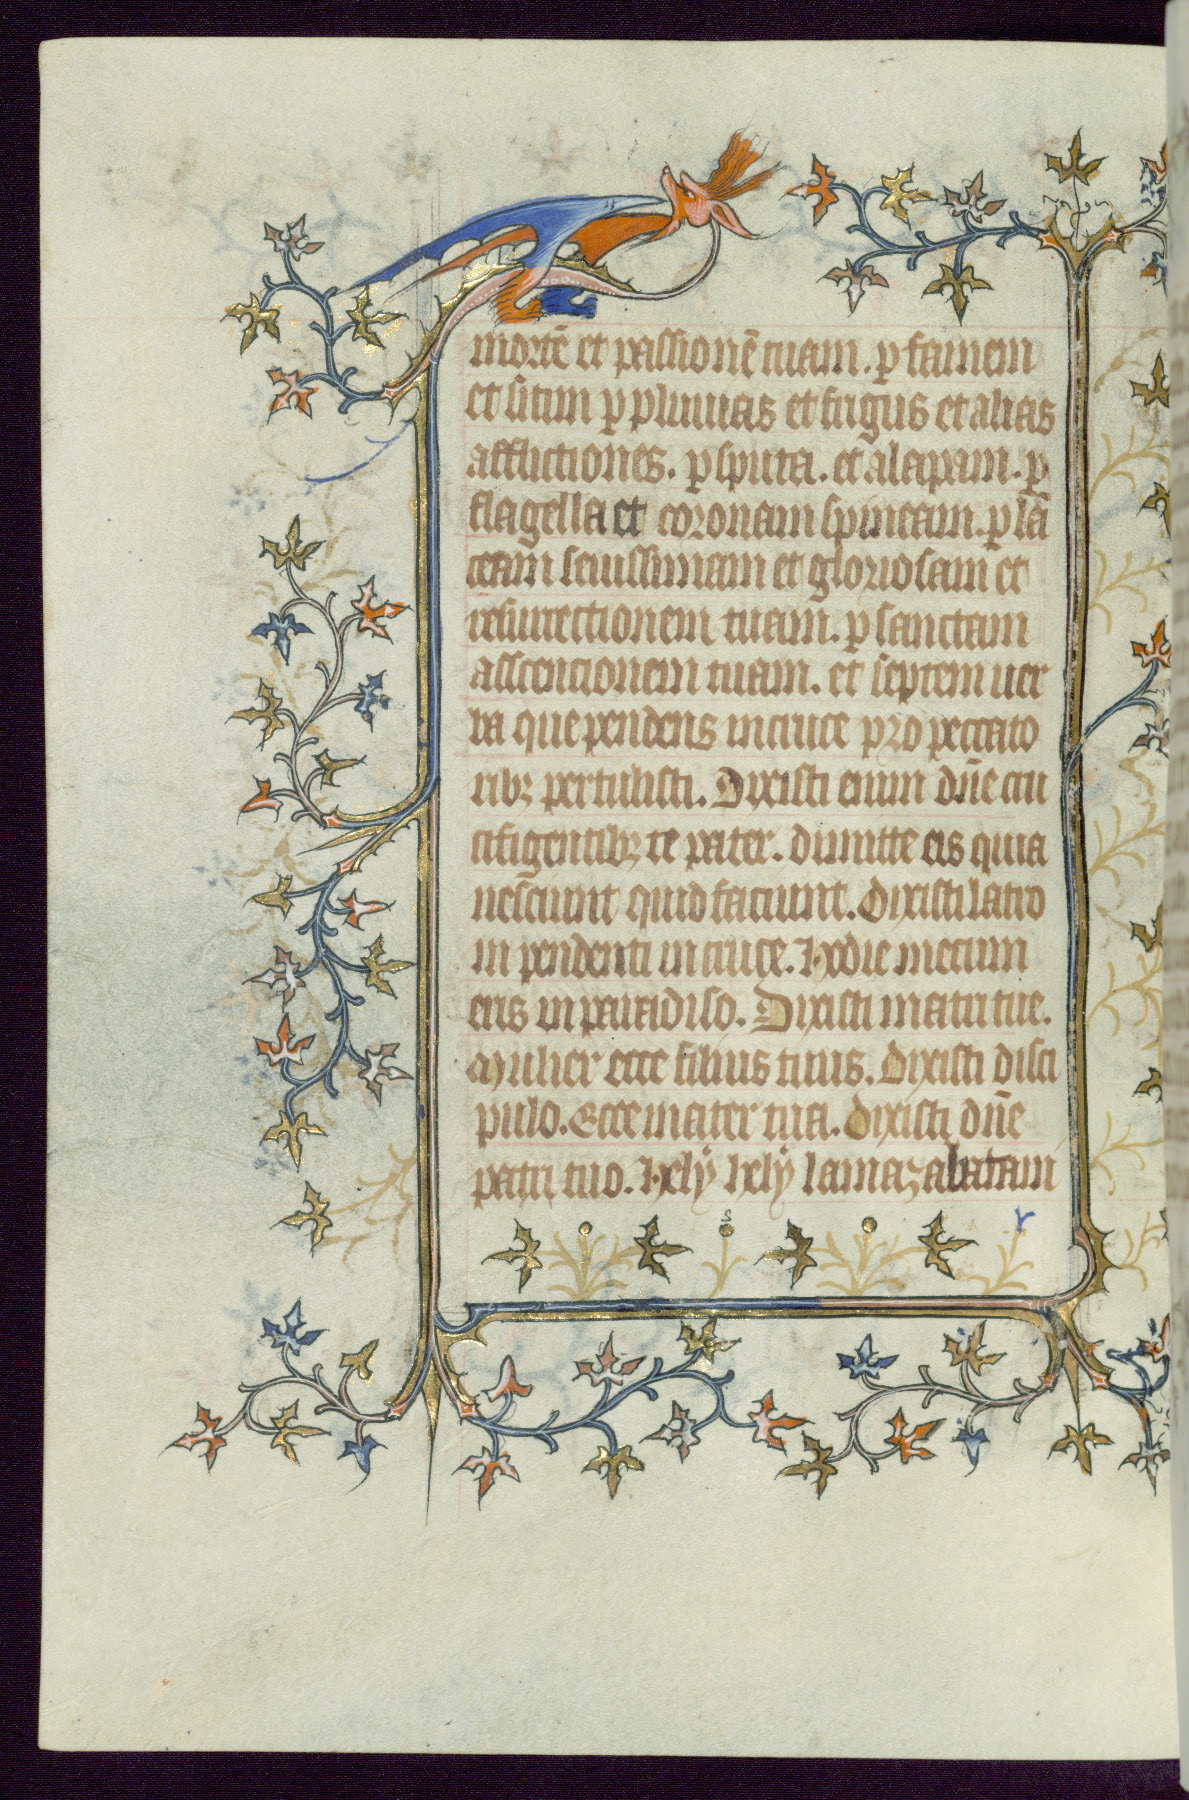 mortē et passionē tuam. ꝑ famem
et sitim ꝑ pluuias et frigus et alias
afflictiones. ꝑ sputa. et alapam. ꝑ
flagella et coronam spineam. ꝑ lā
ceam seuissimam et gloriosam et
resurrectionem tuam. ꝑ sanctam
asscencionem tuam. et septem uer
ba que pendens in cruce pro peccato
ribꝫ pertulisti. Dixisti enim dn̄e cru
cifigentibꝫ te pater. dimitte eis quia
nesciunt quid faciunt. Dixisti latro
ni pendenti in cruce. hodie mecum
eris in paradiso. Dixisti matri tue.
Mulier ecce filius tuus. Dixisti disci
pulo. Ecce mater tua. dixisti dn̄e
patri tuo. hely hely lamazabatani